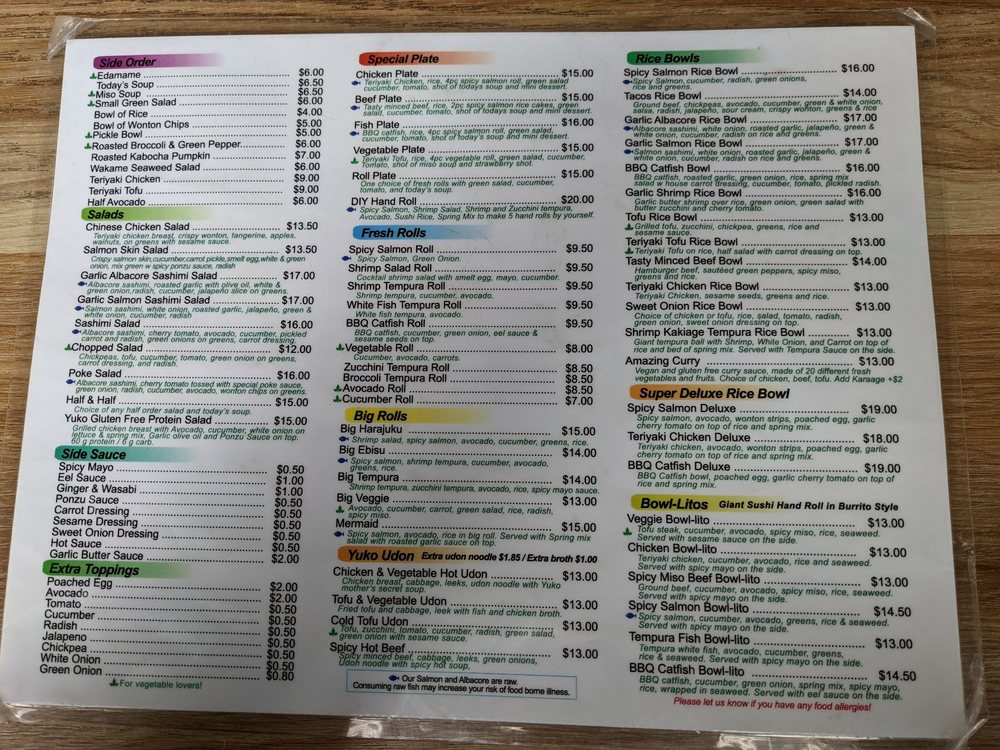 Side Order
Edamame $6.00
Today's Soup $6.50
Miso Soup $6.50
Small Green Salad $6.00
Bowl of Rice $4.00
Bowl of Wonton Chips $5.00
Pickle Bowl $5.00
Roasted Broccoli & Green Pepper $6.00
Roasted Kabocha Pumpkin $7.00
Wakame Seaweed Salad $6.00
Teriyaki Chicken $9.00
Teriyaki Tofu $9.00
Half Avocado $6.00
Salads
Chinese Chicken Salad $13.50
Teriyaki chicken breast, crispy wonton, tangerine, apples,
walnuts, on greens with sesame sauce.
Salmon Skin Salad $13.50
Crispy salmon skin,cucumber,carrot pickle,smelt egg,white & green
onion, mix green w spicy ponzu sauce, radish
Garlic Albacore Sashimi Salad $17.00
Albacore sashimi, roasted garlic with olive oil, white &
green onion,radish, cucumber, jalapeño slice on greens.
Garlic Salmon Sashimi Salad $17.00
Salmon sashimi, white onion, roasted garlic, jalapeño, green &
white onion, cucumber, radish
Sashimi Salad $16.00
Albacore sashimi, cherry tomato, avocado, cucumber, pickled
carrot and radish, green onions on greens, carrot dressing.
Chopped Salad $12.00
Chickpeas, tofu, cucumber, tomato, green onion on greens,
carrot dressing, and radish.
Poke Salad $16.00
Albacore sashimi, cherry tomato tossed with special poke sauce,
green onion, radish, cucumber, avocado, wonton chips on greens.
Half & Half $15.00
Choice of any half order salad and today's soup.
Yuko Gluten Free Protein Salad $15.00
Grilled chicken breast with Avocado, cucumber, white onion on
lettuce & spring mix. Garlic olive oil and Ponzu Sauce on top.
60 g protein / 6 g carb.
Side Sauce
Spicy Mayo $0.50
Eel Sauce $1.00
Ginger & Wasabi $1.00
Ponzu Sauce $0.50
Carrot Dressing $0.50
Sesame Dressing $0.50
Sweet Onion Dressing $0.50
Hot Sauce $0.50
Garlic Butter Sauce $2.00
Extra Toppings
Poached Egg $2.00
Avocado $2.00
Tomato $0.50
Cucumber $0.50
Radish $0.50
Jalapeno $0.50
Chickpea $0.50
White Onion $0.50
Green Onion $0.80
For vegetable lovers!
Special Plate
Chicken Plate $15.00
Teriyaki Chicken, rice, 4pc spicy salmon roll, green salad
cucumber, tomato, shot of todays soup and mini dessert.
Beef Plate $15.00
Tasty minced beef, rice, 2pc spicy salmon rice cakes, green
salad, cucumber, tomato, shot of today's soup and mini dessert.
Fish Plate $16.00
BBQ catfish, rice, 4pc spicy salmon roll, green salad,
cucumber, tomato, shot of today's soup and mini dessert.
Vegetable Plate $15.00
Teriyaki Tofu, rice, 4pc vegetable roll, green salad, cucumber,
Tomato, shot of miso soup and strawberry shot.
Roll Plate $15.00
One choice of fresh rolls with green salad, cucumber,
tomato, and today's soup.
DIY Hand Roll $20.00
Spicy Salmon, Shrimp Salad, Shrimp and Zucchini tempura,
Avocado, Sushi Rice, Spring Mix to make 5 hand rolls by yourself.
Fresh Rolls
Spicy Salmon Roll $9.50
Spicy Salmon, Green Onion.
Shrimp Salad Roll $9.50
Cocktail shrimp salad with smelt egg, mayo, cucumber.
Shrimp Tempura Roll $9.50
Shrimp tempura, cucumber, avocado.
White Fish Tempura Roll $9.50
White fish tempura, avocado.
BBQ Catfish Roll $9.50
BBQ catfish, cucumber, green onion, eel sauce &
sesame seeds on top.
Vegetable Roll $8.00
Cucumber, avocado, carrots.
Zucchini Tempura Roll $8.50
Broccoli Tempura Roll $8.50
Avocado Roll $8.50
Cucumber Roll $7.00
Big Rolls
Big Harajuku $15.00
Shrimp salad, spicy salmon, avocado, cucumber, greens, rice.
Big Ebisu $14.00
Spicy salmon, shrimp tempura, cucumber, avocado,
greens, rice.
Big Tempura $14.00
Shrimp tempura, zucchini tempura, avocado, rice, spicy mayo sauce.
Big Veggie $13.00
Avocado, cucumber, carrot, green salad, rice, radish,
spicy miso.
Mermaid $15.00
Spicy salmon, avocado, rice in big roll. Served with Spring mix
salad with roasted garlic sauce on top.
Yuko Udon Extra udon noodle $1.85 / Extra broth $1.00
Chicken & Vegetable Hot Udon $13.00
Chicken breast, cabbage, leeks, udon noodle with Yuko
mother's secret soup.
Tofu & Vegetable Udon $13.00
Fried tofu and cabbage, leek with fish and chicken broth.
Cold Tofu Udon $13.00
Tofu, zucchini, tomato, cucumber, radish, green salad,
green onion with sesame sauce.
Spicy Hot Beef $13.00
Spicy minced beef, cabbage, leeks, green onions,
Udon noodle with spicy hot soup,
Our Salmon and Albacore are raw.
Consuming raw fish may increase your risk of food borne illness.
Rice Bowls
Spicy Salmon Rice Bowl $16.00
Spicy Salmon, cucumber, radish, green onions,
rice and greens.
Tacos Rice Bowl $14.00
Ground beef, chickpeas, avocado, cucumber, green & white onion,
salsa, radish, jalapeño, sour cream, crispy wonton, greens & rice
Garlic Albacore Rice Bowl $17.00
Albacore sashimi, white onion, roasted garlic, jalapeño, green &
white onion, cucumber, radish on rice and greens.
Garlic Salmon Rice Bowl $17.00
Salmon sashimi, white onion, roasted garlic, jalapeño, green &
white onion, cucumber, radish on rice and greens.
BBQ Catfish Bowl $16.00
BBQ catfish, roasted garlic, green onion, rice, spring mix
salad w house carrot dressing, cucumber, tomato, pickled radish.
Garlic Shrimp Rice Bowl $16.00
Garlic butter shrimp over rice, green onion, green salad with
butter zucchini and cherry tomato.
Tofu Rice Bowl $13.00
Grilled tofu, zucchini, chickpea, greens, rice and
sesame sauce.
Teriyaki Tofu Rice Bowl $13.00
Teriyaki Tofu on rice, half salad with carrot dressing on top.
Tasty Minced Beef Bowl $14.00
Hamburger beef, sautéed green peppers, spicy miso,
greens and rice.
Teriyaki Chicken Rice Bowl $13.00
Teriyaki Chicken, sesame seeds, greens and rice.
Sweet Onion Rice Bowl $13.00
Choice of chicken or tofu, rice, salad, tomato, radish,
green onion, sweet onion dressing on top.
Shrimp Kakiage Tempura Rice Bowl $13.00
Giant tempura ball with Shrimp, White Onion, and Carrot on top of
rice and bed of spring mix. Served with Tempura Sauce on the side.
Amazing Curry $13.00
Vegan and gluten free curry sauce, made of 20 different fresh
vegetables and fruits. Choice of chicken, beef, tofu. Add Karaage +$2
Super Deluxe Rice Bowl
Spicy Salmon Deluxe $19.00
Spicy salmon, avocado, wonton strips, poached egg, garlic
cherry tomato on top of rice and spring mix.
Teriyaki Chicken Deluxe $18.00
Teriyaki chicken, avocado, wonton strips, poached egg, garlic
cherry tomato on top of rice and spring mix.
BBQ Catfish Deluxe $19.00
BBQ Catfish bowl, poached egg, garlic cherry tomato on top of
rice and spring mix.
Bowl-Litos Giant Sushi Hand Roll in Burrito Style
Veggie Bowl-lito $13.00
Tofu steak, cucumber, avocado, spicy miso, rice, seaweed.
Served with sesame sauce on the side.
Chicken Bowl-lito $13.00
Teriyaki chicken, cucumber, avocado, rice and seaweed.
Served with spicy mayo on the side.
Spicy Miso Beef Bowl-lito $13.00
Ground beef, cucumber, avocado, spicy miso, rice, seaweed.
Served with spicy mayo on the side.
Spicy Salmon Bowl-lito $14.50
Spicy salmon, cucumber, avocado, greens, rice & seaweed.
Served with spicy mayo on the side.
Tempura Fish Bowl-lito $13.00
Tempura white fish, avocado, cucumber, greens,
rice & seaweed. Served with spicy mayo on the side.
BBQ Catfish Bowl-lito $14.50
BBQ catfish, cucumber, green onion, spring mix, spicy mayo,
rice, wrapped in seaweed. Served with eel sauce on the side.
Please let us know if you have any food allergies!